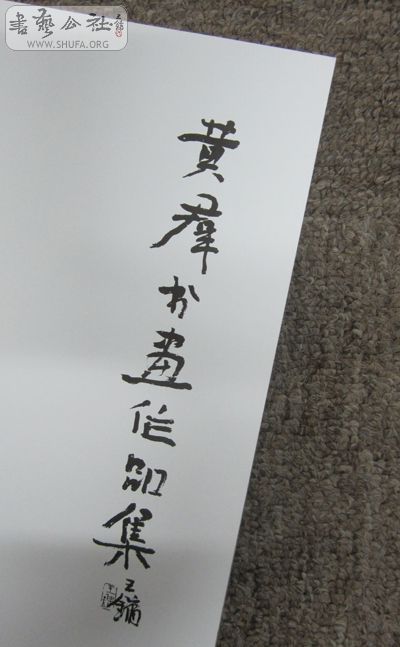 書藝公社
WWW.SHUFA.ORG
黄群书畫作品集
王鏞